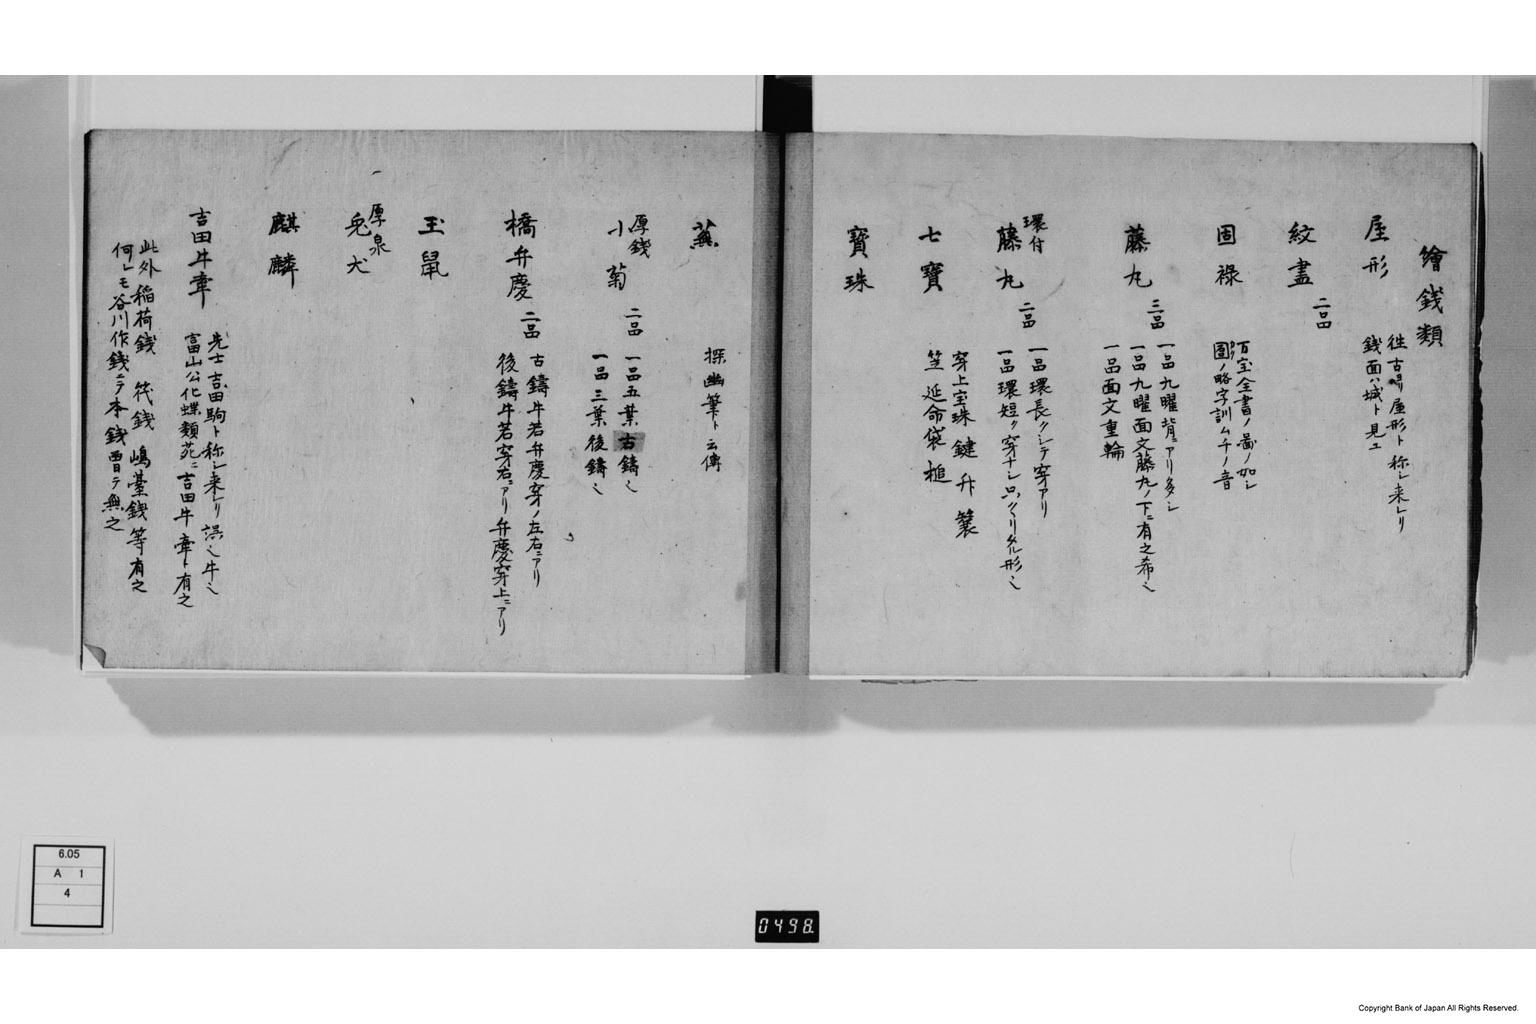 繪錢類
屋形
往古ヨリ屋形ト称シ来レリ
錢面ハ城ト見エ
紋盡
二品
固禄
万宝全書ノ啚ノ加シ
圖ノ略字訓ムチノ音
藤丸
三品
一品九曜背ニアリ多シ
一品九曜面文藤丸ノ下ニ有之希シ
一品面文重輪
環付
藤丸
二品
一品環長クシテ穿アリ
一品環短ク穿ナシ只クリタル形シ
七寶
穿上宝珠鍵升簑
笠延命袋槌
寶珠
蕪
探幽筆ト云傳
厚錢
小菊
二品
一品五葉古鑄シ
一品三葉後鑄シ
橋弁慶
二品
古鑄牛若弁慶穿ノ左右ニアリ
後鑄牛若穿右ニアリ弁慶穿上ニアリ
玉鼠
厚泉
兎犬
麒麟
吉田牛牽
先士吉田駒ト称シ来レリ誤シ牛シ
富山公化蝶類苑ニ吉田牛牽ト有之
此外稲荷錢 筏錢 嶋臺錢等有之
何レモ谷川作錢ニテ本錢曽テ無之
6.05
A 1
4
0498
Copyright Bank of Japan All Rights Reserved.